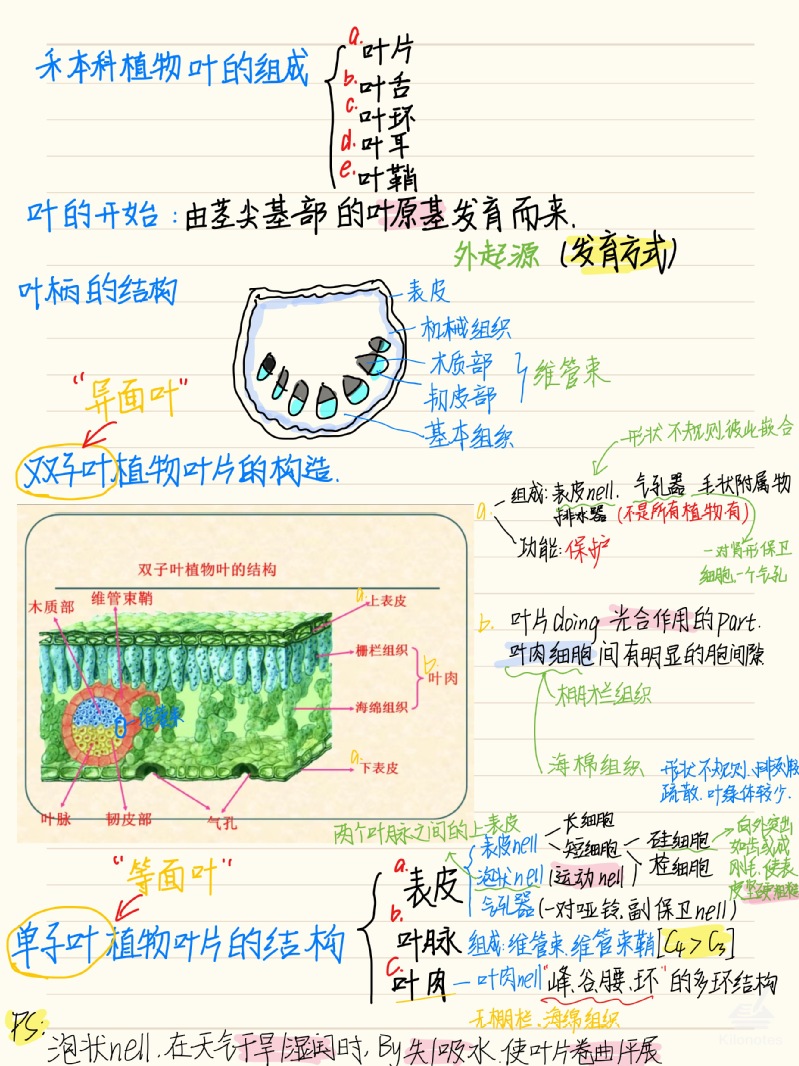 禾本科植物叶的组成
a. 叶片
b. 叶舌
c. 叶环
d. 叶耳
e. 叶鞘
叶的开始：由茎尖基部的叶原基发育而来.
外起源 (发育方式)
叶柄的结构
表皮
机械组织
木质部
韧皮部
维管束
基本组织
"异面叶"
双子叶植物叶片的构造.
形状不规则,彼此嵌合
a. 组成:表皮nell. 气孔器 毛状附属物
排水器 (不是所有植物有)
功能:保护
一对肾形保卫
细胞,一个气孔
双子叶植物叶的结构
木质部
维管束鞘
a. 上表皮
栅栏组织
b. 叶肉
海绵组织
维管束
a. 下表皮
叶脉
韧皮部
气孔
b. 叶片doing 光合作用的part.
叶肉细胞间有明显的胞间隙
栅栏组织
海棉组织
形状不规则、排列较
疏散.叶绿体较少.
两个叶脉之间的上表皮
"等面叶"
单子叶植物叶片的结构
a. 表皮
表皮nell
长细胞
短细胞
硅细胞
栓细胞
向外突出
如齿或成
刚毛,使表
皮坚硬粗糙
泡状nell (运动nell)
气孔器 (一对哑铃,副保卫nell)
b. 叶脉 组成:维管束,维管束鞘[C4>C3]
c. 叶肉 — 叶肉nell"峰、谷、腰、环"的多环结构
无栅栏、海绵组织
PS:
泡状nell.在天气干旱/湿润时, By失/吸水.使叶片卷曲/平展
Kilonotes